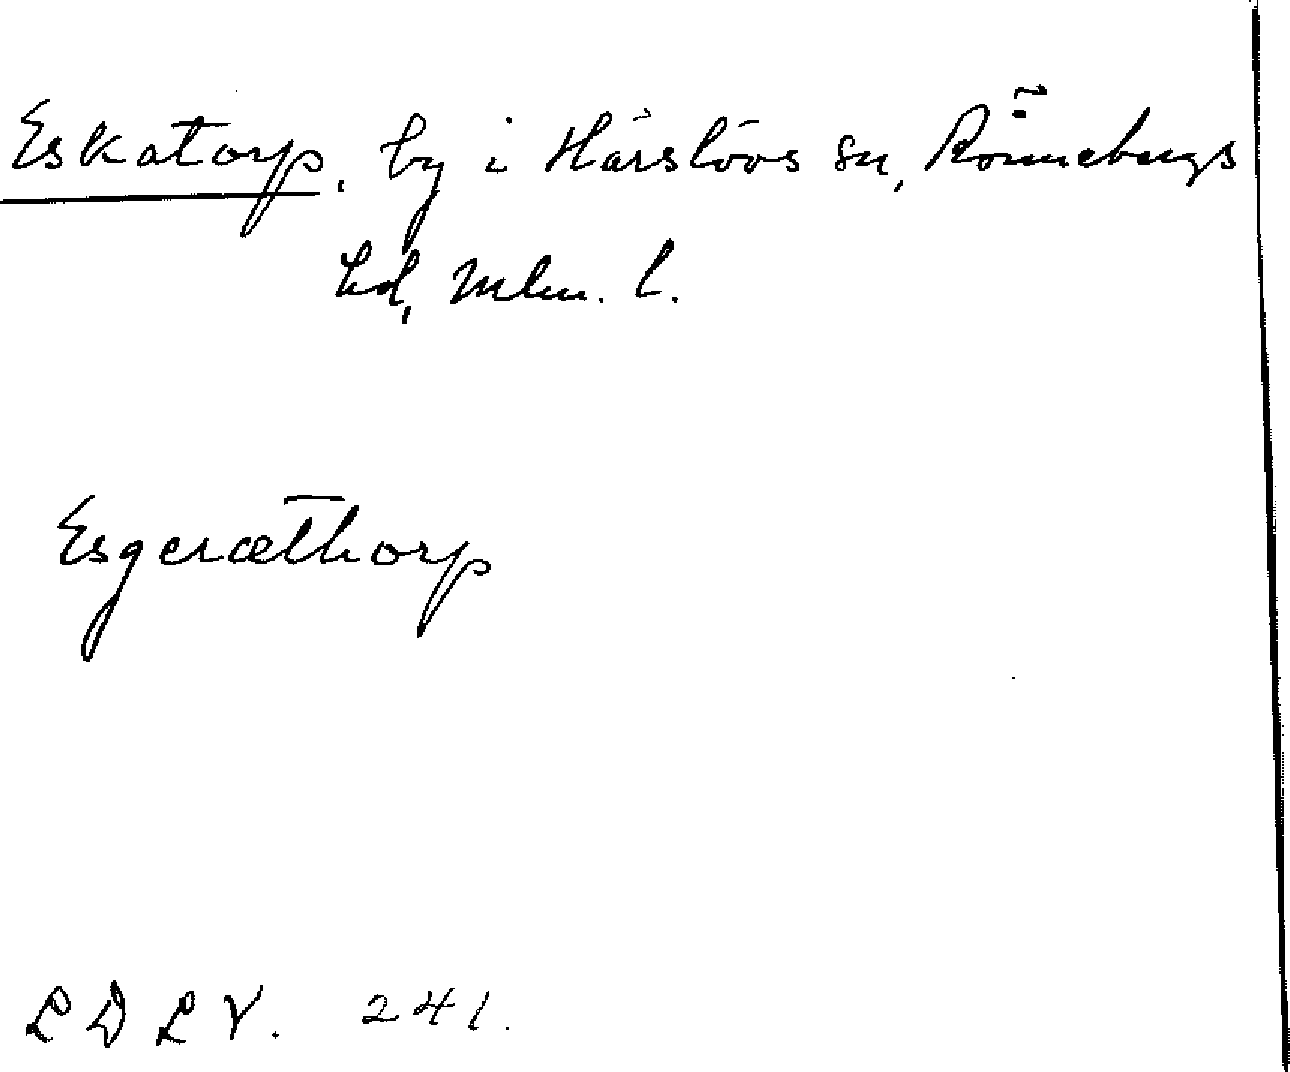 Eskatorp, by i Härslövs sn, Rönnebergs
hd, Mlm. l.
Esgeræthorp
LDLV. 241.